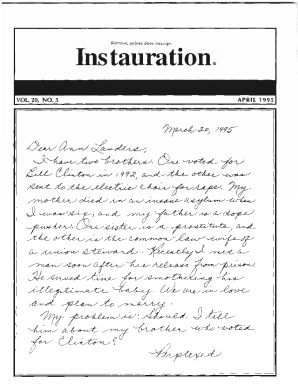 Instauration®
VOL. 20, NO. 5
APRIL 1995
March 20, 1995
Dear Ann Landers,
I have two brothers. One voted for
Bill Clinton in 1992, and the other was
sent to the electric chair for rape. My
mother died in an insane asylum when
I was six, and my father is a dope
pusher. One sister is a prostitute, and
the other is the common law wife of
a union steward. Recently I met a
man soon after his release from prison
He served time for smothering his
illegitimate baby. We are in love
and plan to marry.
My problem is: Should I tell
him about my brother who voted
for Clinton?
Perplexed